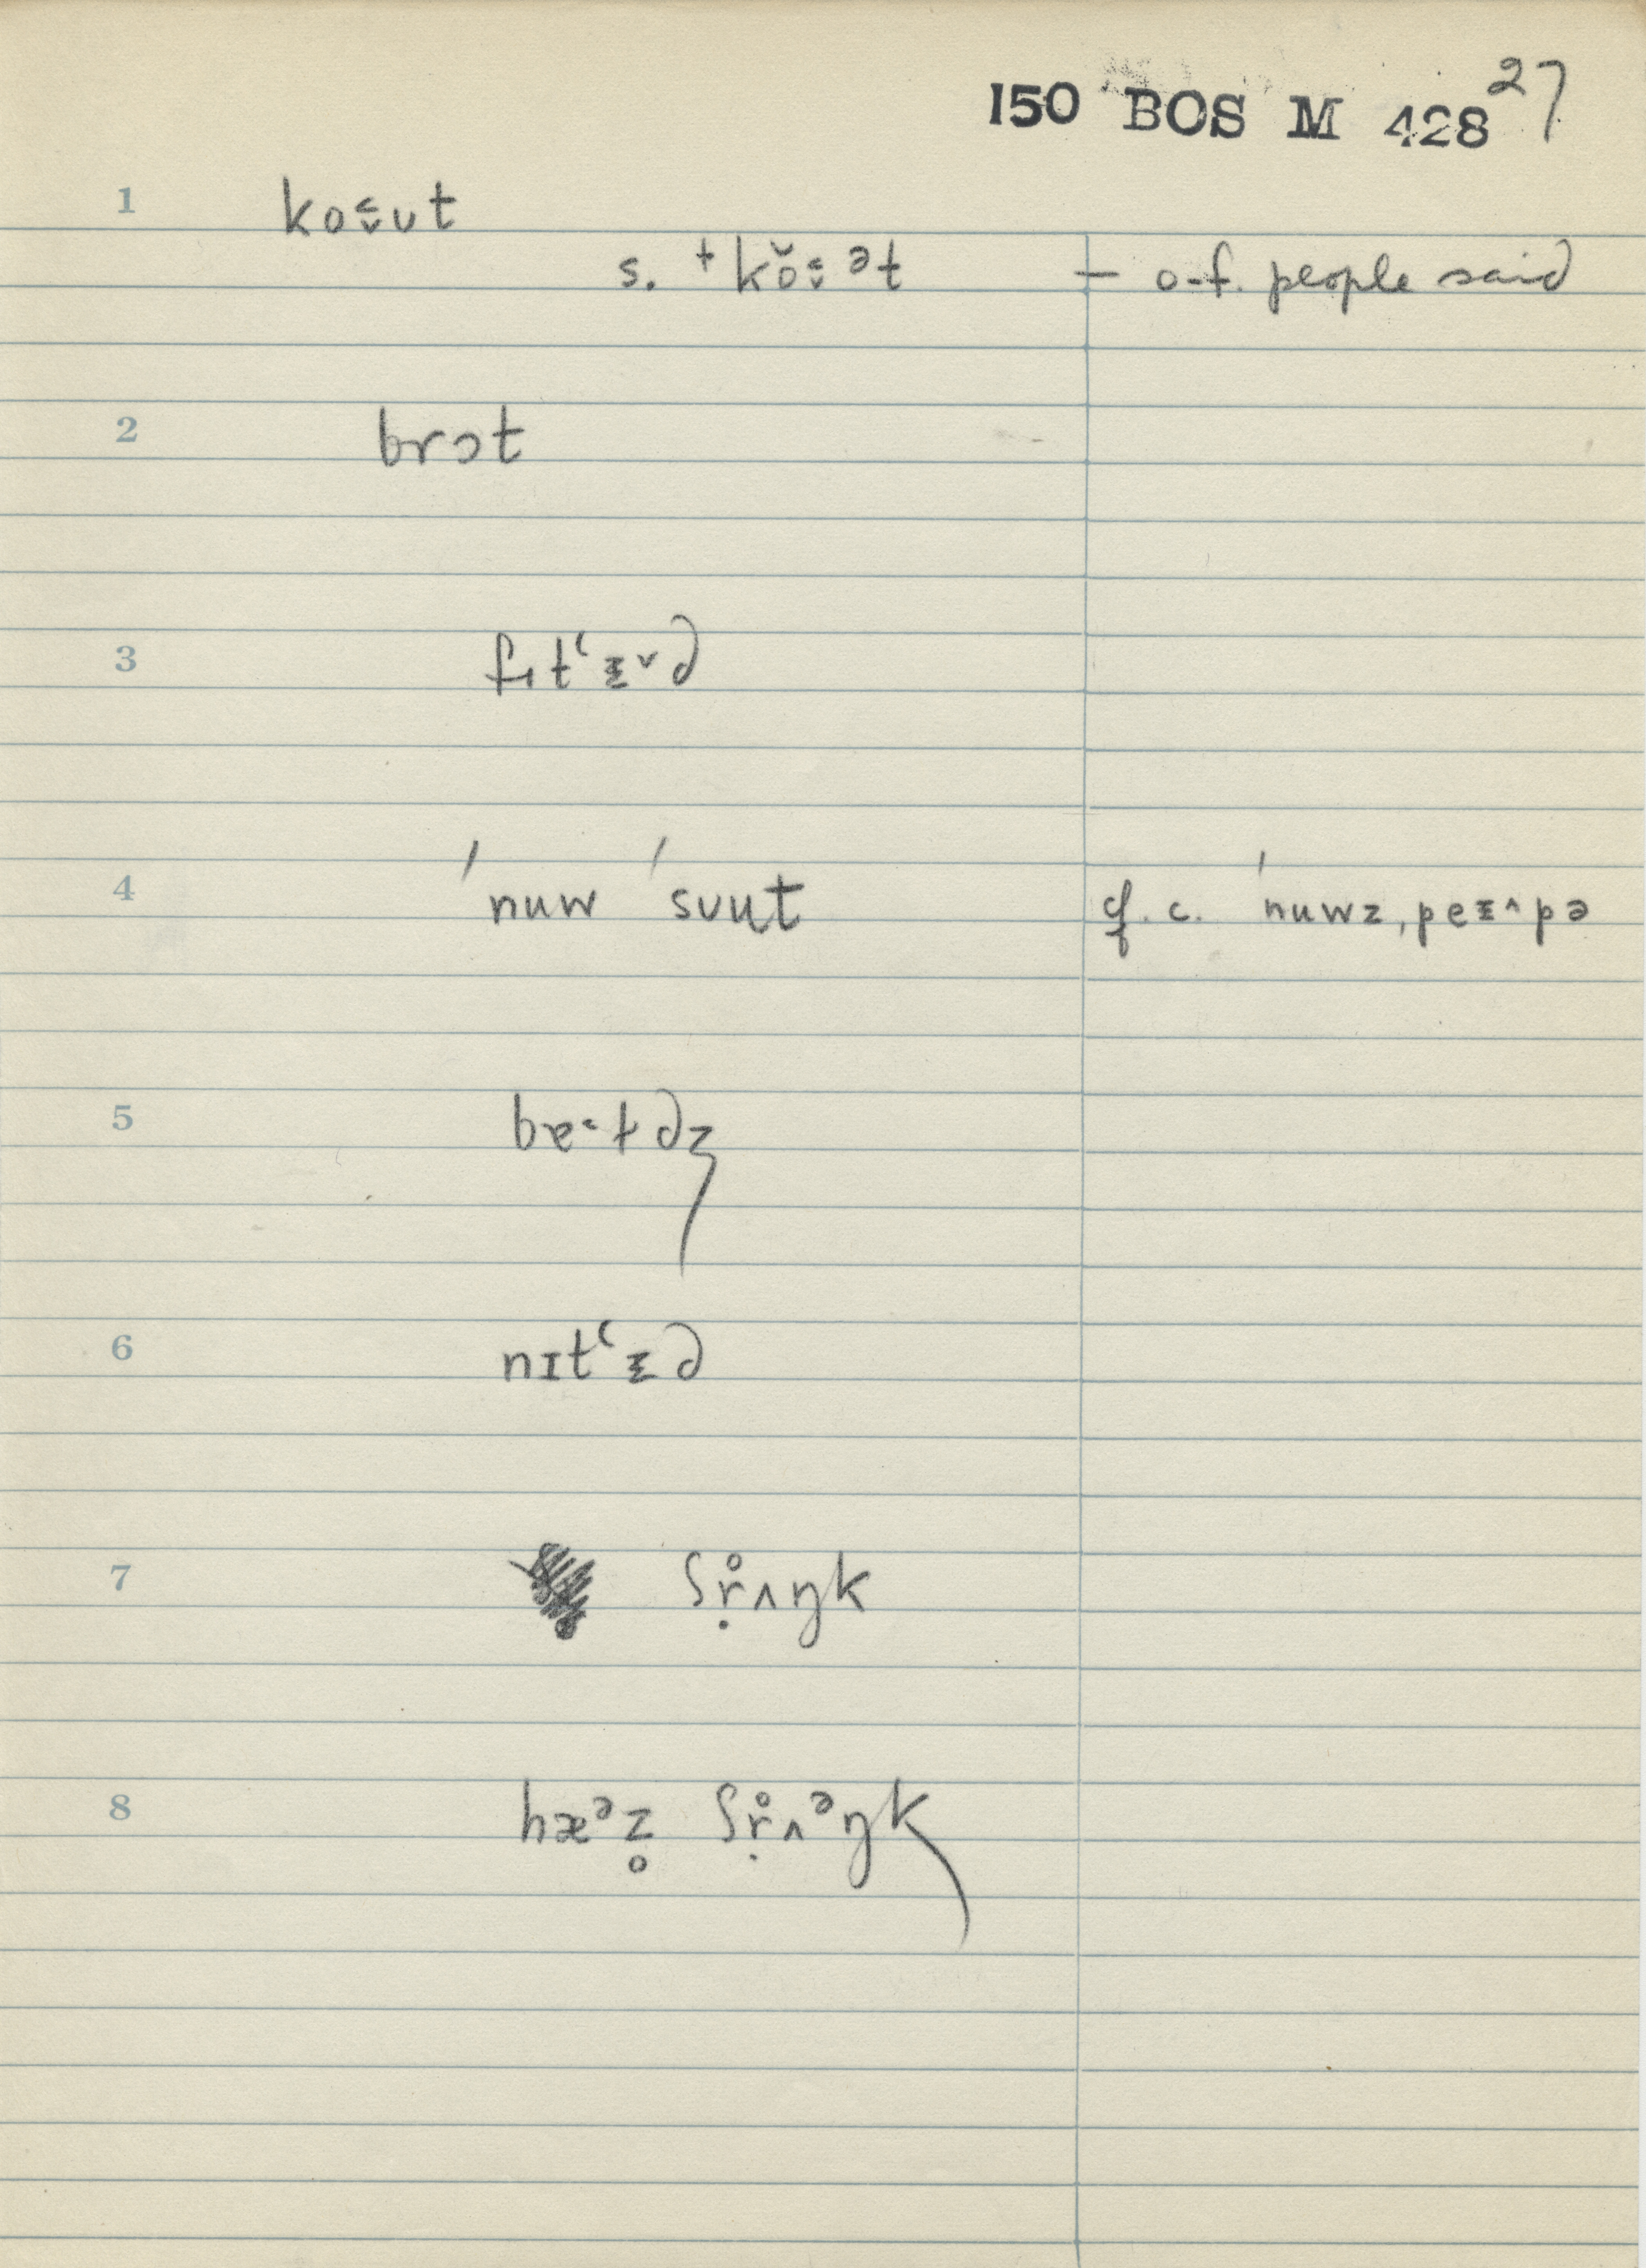 27
150 BOS M 428
1 koʊt
s. + kŏət – o-f. people said
2 brɔt
3 fɪtʻɪ˅d
4 ˈnuw ˈsuut cf. c. ˈnuwz, peɪ^pə
5
6 nɪtʻɪd
7 ʃr̥̣ʌŋk
8 hæᵊz̥ ʃr̥̣ʌᵊŋk